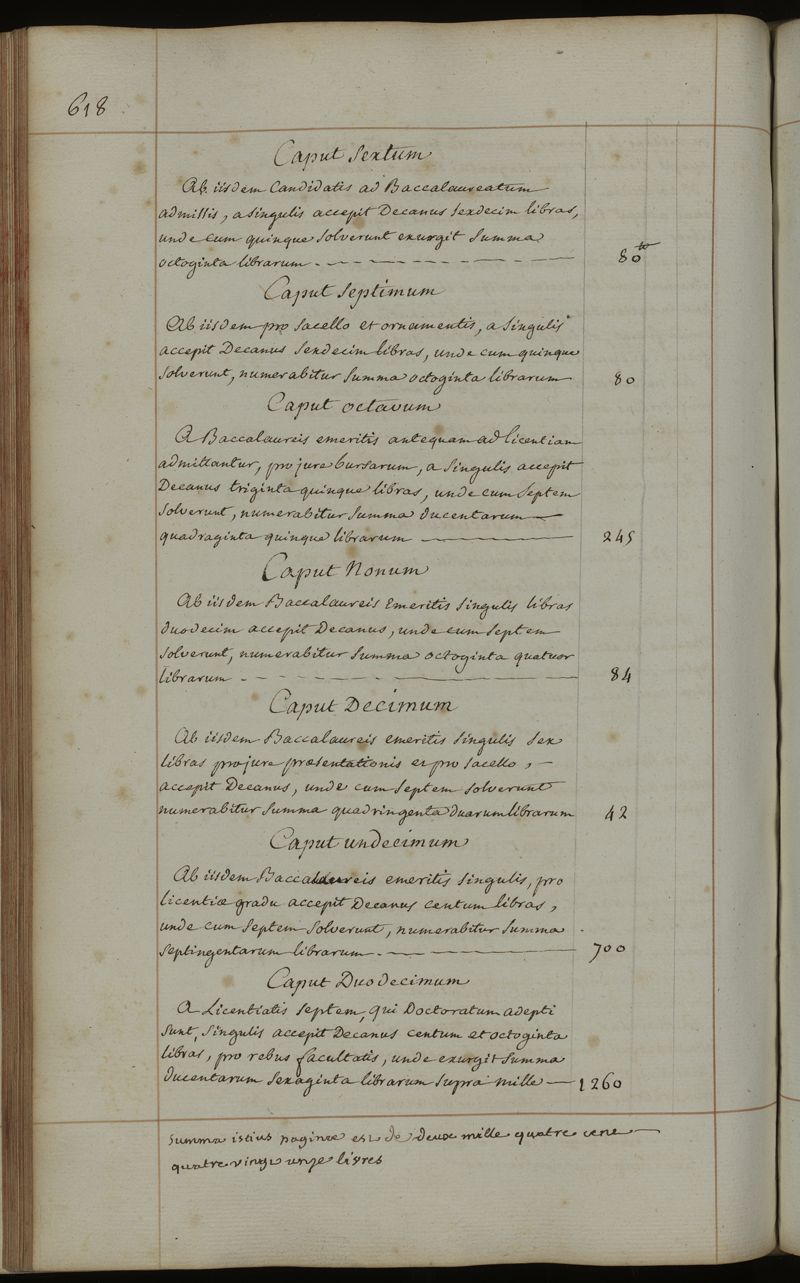 618
Caput Sextum
Ab iisdem Candidatis ad Baccalaureatum
admissis, a singulis accepit Decanus sexdecim libras,
unde cum quinque solverunt exurgit summa
octoginta librarum. 80 ₶
Caput Septimum
Ab iisdem pro sacello et ornamentis, a singulis
accepit Decanus sexdecim libras, unde cum quinque
solverunt, numerabitur summa octoginta librarum 80
Caput octavum
A Baccalaureis emeritis antequam ad licentiam
admittantur, pro jure bursarum, a singulis accepit
Decanus triginta quinque libras, unde cum septem
solverunt, numerabitur summa ducentarum
quadraginta quinque librarum 245
Caput Nonum
Ab iisdem Baccalaureis Emeritis singulis libras
duodecim accepit Decanus, unde cum septem
solverunt, numerabitur summa octoginta quatuor
librarum 84
Caput Decimum
Ab iisdem Baccalaureis emeritis singulis sex
libras pro jure præsentationis et pro sacello,
accepit Decanus, unde cum septem solverunt
numerabitur summa quadringenta duarum librarum 42
Caput undecimum
Ab iisdem Baccalaureis emeritis singulis, pro
licentiæ gradu accepit Decanus centum libras,
unde cum septem solverunt, numerabitur summa
septingentarum librarum. 700
Caput Duodecimum
A Licentiatis septem, qui Doctoratum adepti
sunt, singulis accepit Decanus centum et octoginta
libras, pro rebus facultatis, unde exurgit summa
ducentarum sexaginta librarum supra mille 1260
Summa istius paginæ est de deux mille quatre cent
quatre vingt onze livres